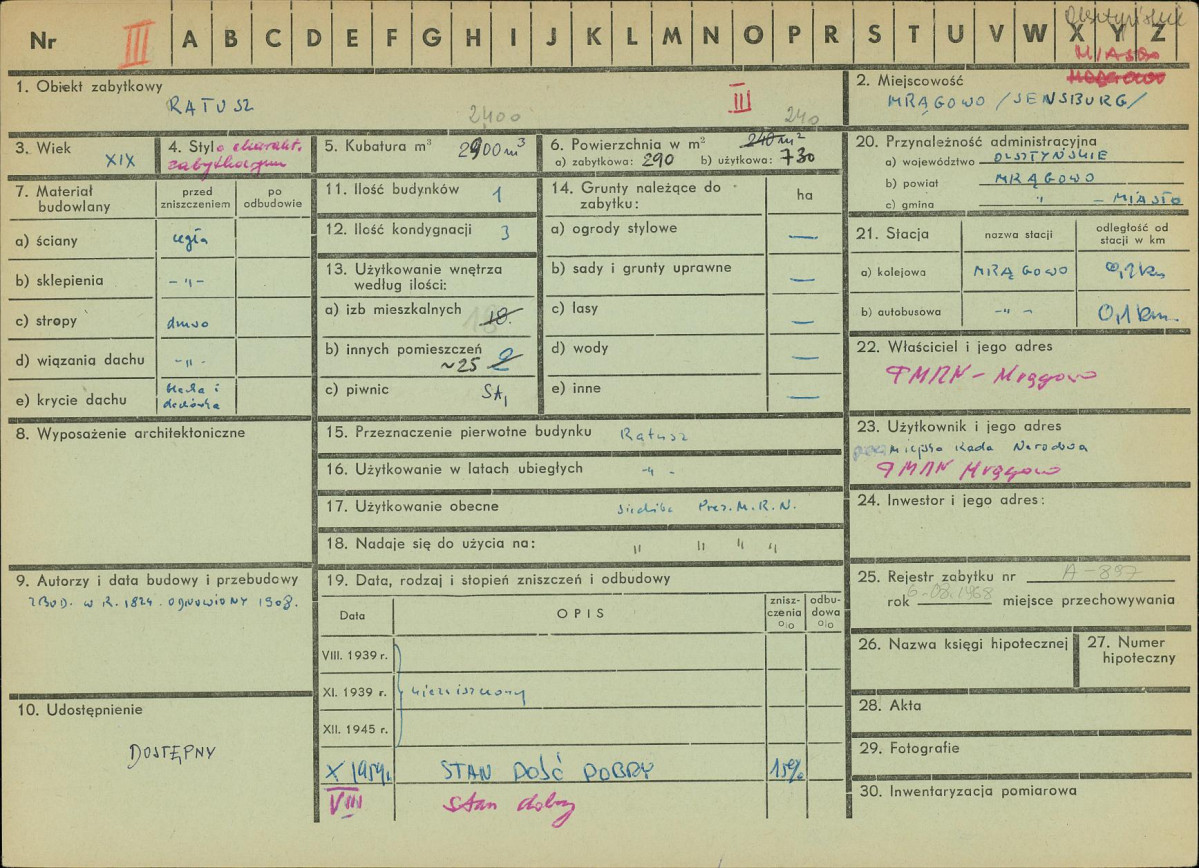 Nr III A B C D E F G H I J K L M N O P R S T U V W X Y Z
MIASTO
1. Obiekt zabytkowy
RATUSZ
III
2. Miejscowość
MRĄGOWO /SENSBURG/
3. Wiek
XIX
4. Styl o charakt.
zabytkowym
2400
5. Kubatura m³ 2900 m³
240
6. Powierzchnia w m² 240 m²
a) zabytkowa: 290 b) użytkowa: 730
20. Przynależność administracyjna
a) województwo OLSZTYŃSKIE
b) powiat MRĄGOWO
c) gmina " – MIASTO
7. Materiał budowlany
przed zniszczeniem
po odbudowie
a) ściany cegła
b) sklepienia – " –
c) stropy drewno
d) wiązania dachu – " –
e) krycie dachu blacha i
dachówka
11. Ilość budynków 1
12. Ilość kondygnacji 3
13. Użytkowanie wnętrza
według ilości:
a) izb mieszkalnych 18
b) innych pomieszczeń 2
~25
c) piwnic SĄ,
14. Grunty należące do
zabytku:
ha
a) ogrody stylowe —
b) sady i grunty uprawne —
c) lasy —
d) wody —
e) inne —
21. Stacja
nazwa stacji
odległość od
stacji w km
a) kolejowa MRĄGOWO
b) autobusowa – " – 0,1 km.
22. Właściciel i jego adres
PMRN – Mrągowo
8. Wyposażenie architektoniczne
15. Przeznaczenie pierwotne budynku Ratusz
16. Użytkowanie w latach ubiegłych – " –
17. Użytkowanie obecne siedziba Prez. M. R. N.
18. Nadaje się do użycia na: " " " "
23. Użytkownik i jego adres
Miejska Rada Narodowa
PMRN Mrągowo
24. Inwestor i jego adres:
9. Autorzy i data budowy i przebudowy
ZBUD. W R. 1824. ODNOWIONY 1908.
19. Data, rodzaj i stopień zniszczeń i odbudowy
Data
OPIS
znisz-
czenia
%
odbu-
dowa
%
VIII. 1939 r.
XI. 1939 r. niezniszczony
XII. 1945 r.
X 1959 r. STAN DOŚĆ DOBRY 15%
VIII stan dobry
25. Rejestr zabytku nr A-897
rok 6-02.1968 miejsce przechowywania
26. Nazwa księgi hipotecznej
27. Numer
hipoteczny
10. Udostępnienie
DOSTĘPNY
28. Akta
29. Fotografie
30. Inwentaryzacja pomiarowa